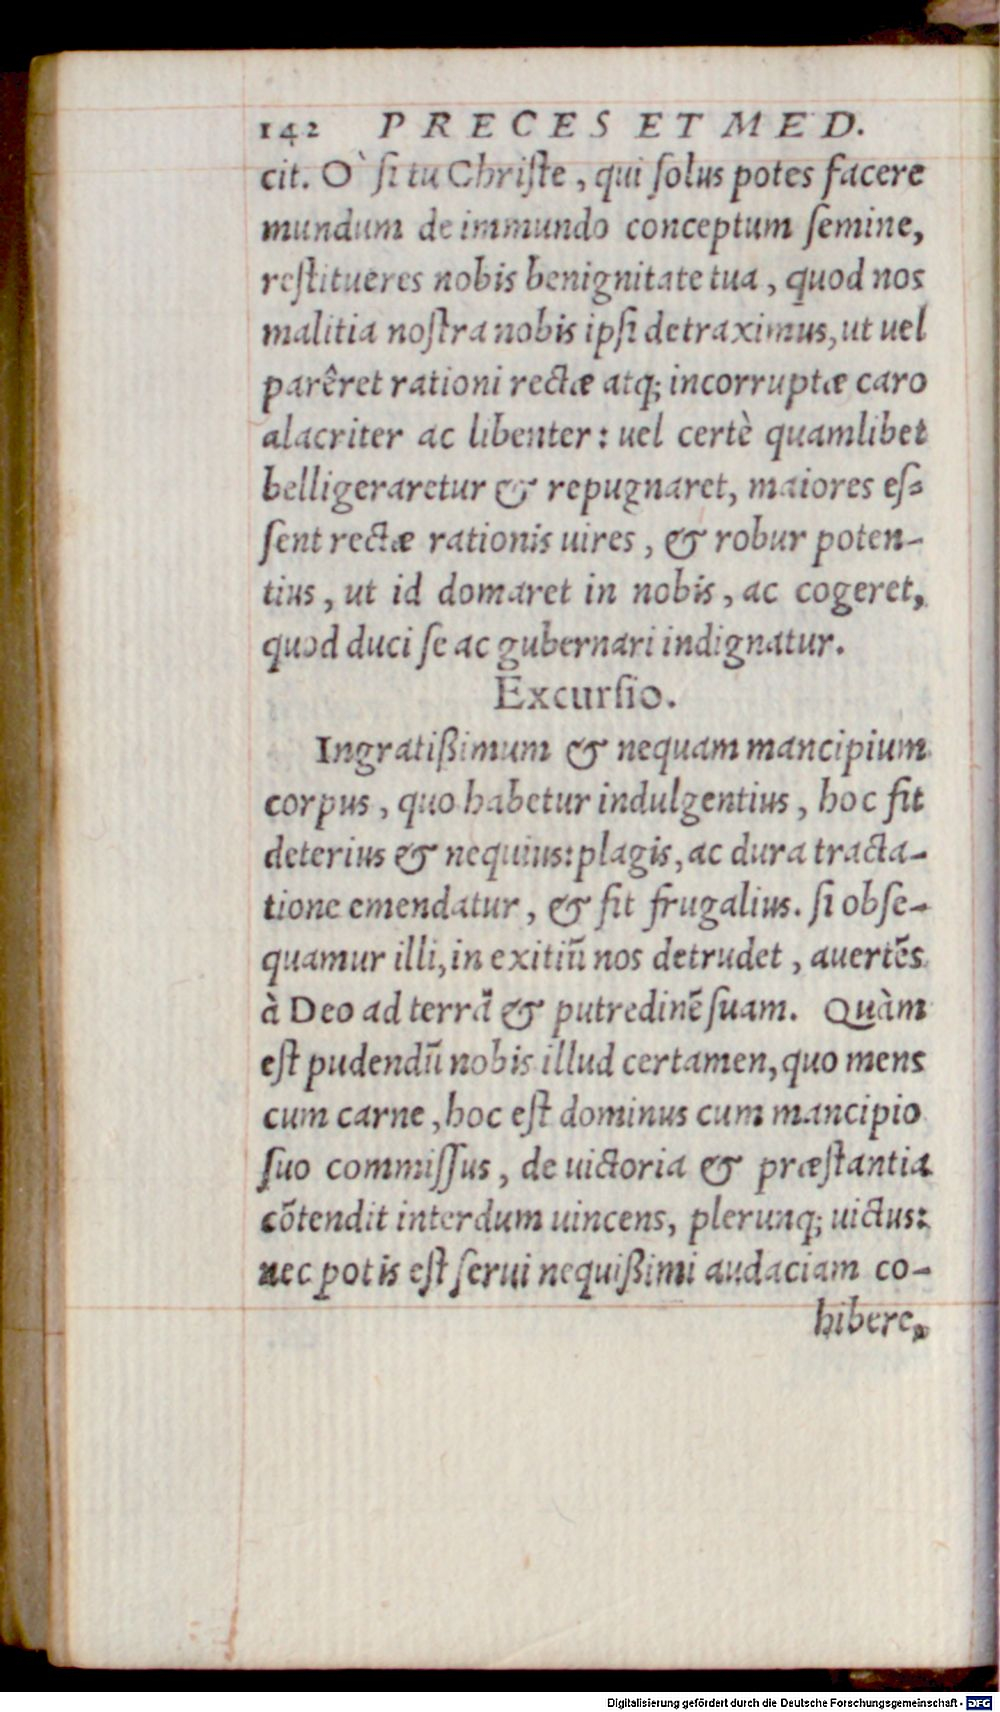 142 PRECES ET MED.
cit. Ò si tu Christe, qui solus potes facere
mundum de immundo conceptum semine,
restitueres nobis benignitate tua, quod nos
malitia nostra nobis ipsi detraximus, ut uel
parêret rationi rectæ atq; incorruptæ caro
alacriter ac libenter: uel certè quamlibet
belligeraretur & repugnaret, maiores es-
sent rectæ rationis uires, & robur poten-
tius, ut id domaret in nobis, ac cogeret,
quod duci se ac gubernari indignatur.
Excursio.
Ingratißimum & nequam mancipium
corpus, quo habetur indulgentius, hoc fit
deterius & nequius: plagis, ac dura tracta-
tione emendatur, & fit frugalius. si obse-
quamur illi, in exitiũ nos detrudet, auertẽs
à Deo ad terrã & putredinẽ suam. Quàm
est pudendũ nobis illud certamen, quo mens
cum carne, hoc est dominus cum mancipio
suo commissus, de uictoria & præstantia
cõtendit interdum uincens, plerunq; uictus:
nec potis est serui nequißimi audaciam co-
hibere,
Digitalisierung gefördert durch die Deutsche Forschungsgemeinschaft - DFG